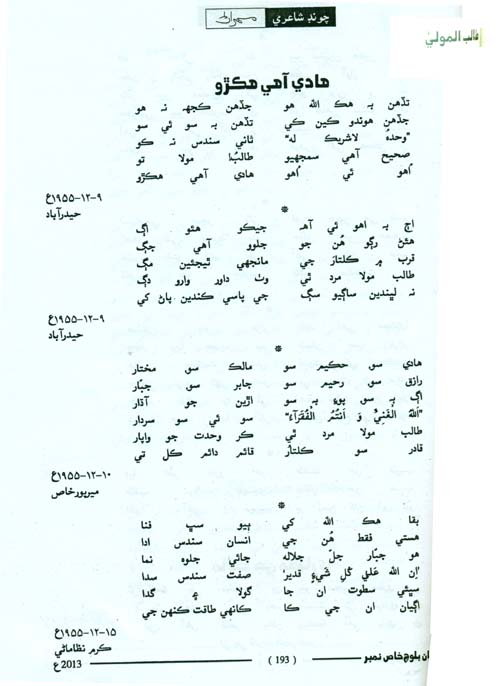 چونڊ شاعري
طالب الموليٰ
هادي آهي هڪڙو
تڏهن به هڪ الله هو جڏهن ڪجهہ نہ هو
جڏهن هوندو ڪين ڪي تڏهن به سو ئي سو
"وحدهٗ لاشريڪ له" ثاني سندس نہ ڪو
صحيح آهي سمجهيو طالبُ! مولا تو
اُهو ئي اُهو هادي آهي هڪڙو
۹-۱۲-۱۹۵۵ع
حيدرآباد
*
اڄ به اهو ئي آهہ جيڪو هئو اڳ
هئڻ رڳو هُن جو جلوو آهي جڳ
قرب ۾ ڪلتارَ جي مانجهي ٿيڄئين مڳ
طالب مولا مرد ٿي وٺ داور وارو دڳ
نہ لپندين ساڳيو سڳ جي پاسي ڪندين پاڻ کي
۹-۱۲-۱۹۵۵ع
حيدرآباد
*
هادي سو حڪيم سو مالڪ سو مختار
رازق سو رحيم سو جابر سو جبّار
اڳ به سو پوءِ به سو اڙين جو آڌار
"اَللهُ الْغَنِيُّ وَ اَنتُمُ الْفُقَرَآءُ" سو ئي سو سردار
طالب مولا مرد ٿي ڪر وحدت جو واپار
قادر سو ڪلتار قائم دائم ڪل تي
۱۰-۱۲-۱۹۵۵ع
ميرپورخاص
*
بقا هڪ الله کي ٻيو سڀ فنا
هستي فقط هُن جي انسان سندس ادا
هو جبّار جلّ جلاله جائي جلوه نما
"اِن الله عَليٰ کُلِ شَيءٍ قدير" صفت سندس سدا
سڀئي سطوت ان جا گولا ۽ گدا
اڳيان ان جي ڪا ڪانهي طاقت ڪنهن جي
۱۵-۱۲-۱۹۵۵ع
ڪرم نظاماڻي
2013ع
( 193 )
ان بلوچ خاص نمبر